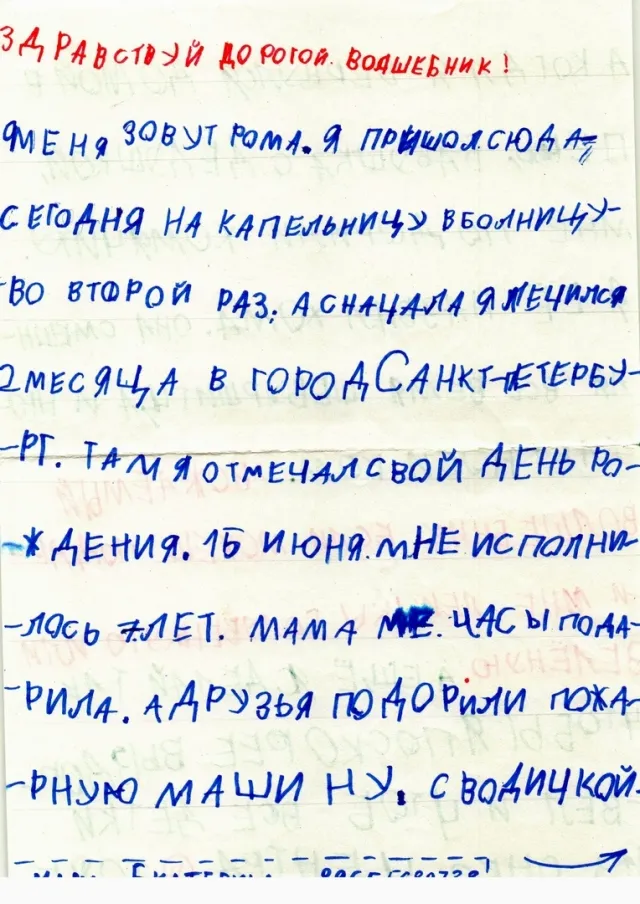 ЗДРАВСТВУЙ ДОРОГОЙ ВОЛШЕБНИК!
МЕНЯ ЗОВУТ РОМА. Я ПРИШОЛ СЮДА-
СЕГОДНЯ НА КАПЕЛЬНИЦУ В БОЛНИЦУ-
-ВО ВТОРОЙ РАЗ. А СНАЧАЛА Я ЛЕЧИЛСЯ
2 МЕСЯЦА В ГОРОД САНКТ-ПЕТЕРБУ-
-РГ. ТАМ Я ОТМЕЧАЛ СВОЙ ДЕНЬ РО-
-ЖДЕНИЯ. 15 ИЮНЯ. МНЕ ИСПОЛНИ-
-ЛОСЬ 7 ЛЕТ. МАМА МНЕ. ЧАСЫ ПОДА-
-РИЛА. А ДРУЗЬЯ ПОДОРИЛИ ПОЖА-
-РНУЮ МАШИНУ. С ВОДИЧКОЙ.